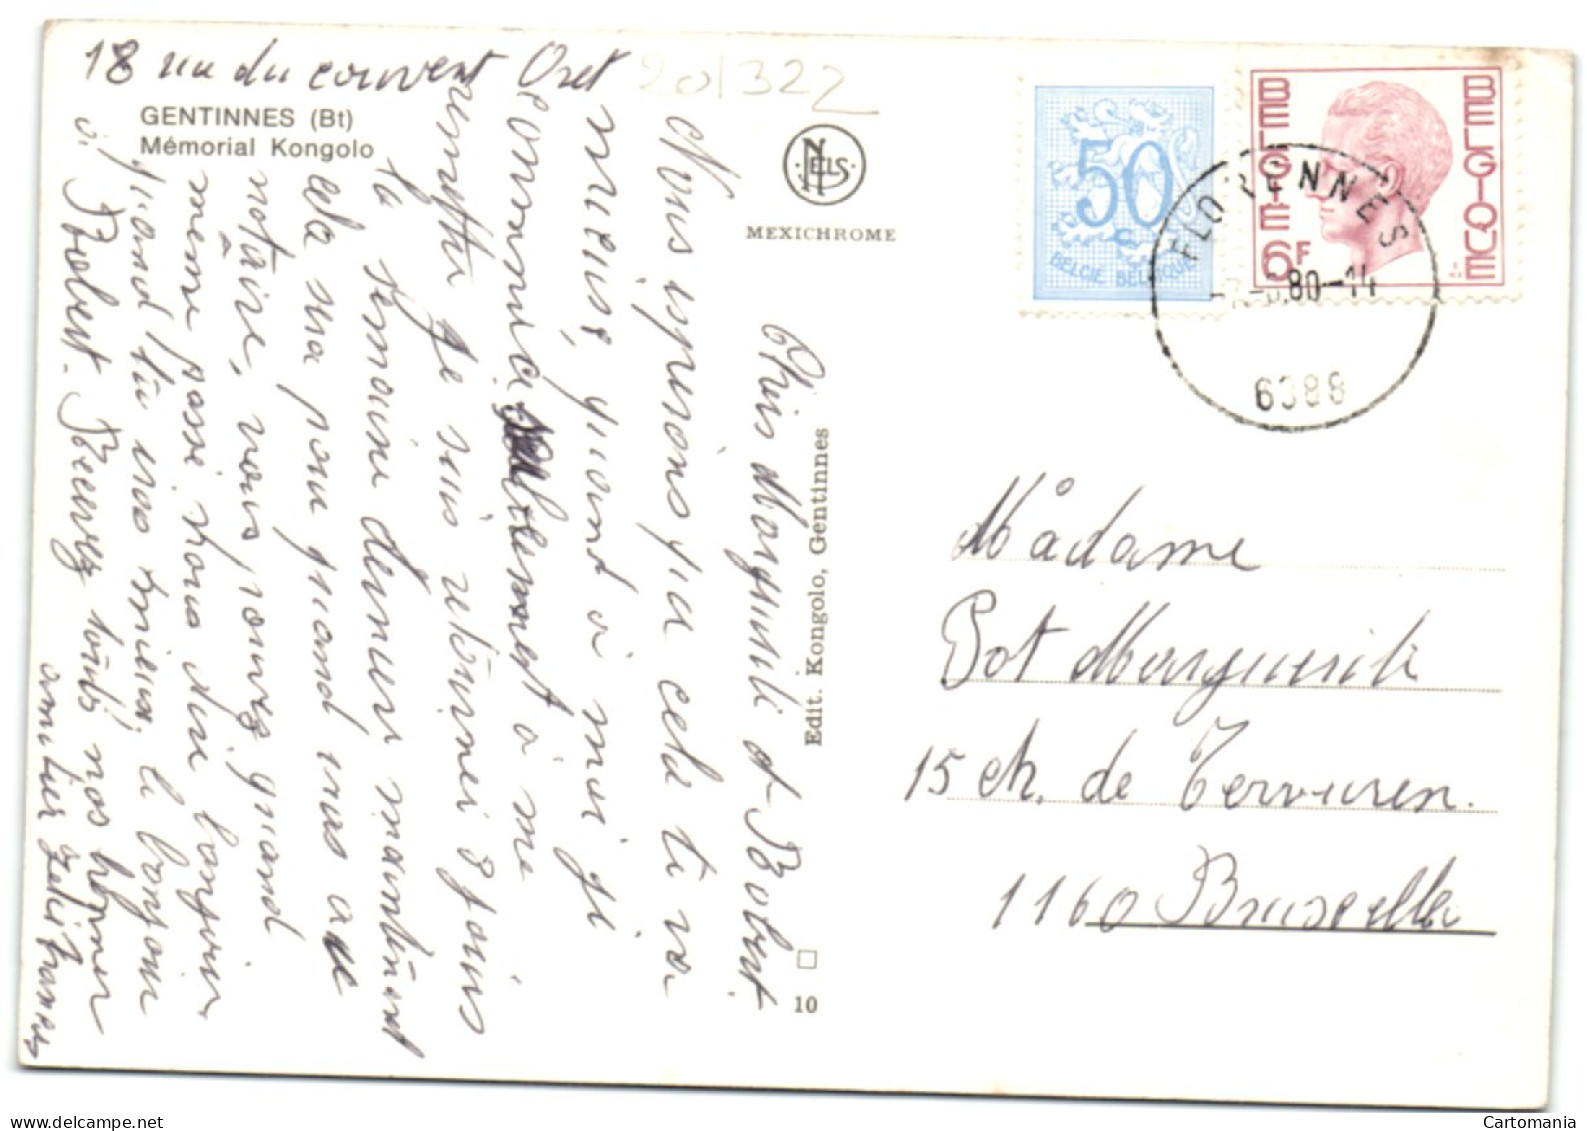 18 rue du couvent Oret
20/322
GENTINNES (Bt)
Mémorial Kongolo
NELS
MEXICHROME
50
C
BELGIE BELGIQUE
BELGIE
BELGIQUE
6F
FLORENNES
80-14
6388
Chers Marguerite et Robert
Nous esperons que cela te va
mieux, quant à moi je
commence à me
remettre je suis retournei 8 jours
la semaine derniere maintenant
cela sera pour quand nous au
notaire, vous pouvez quand
meme passé nous dire bonjour
quand tu iras mieux. le bonjour
à Robert. Recevez tout nos bonner
amitier
Edit. Kongolo, Gentinnes
10
Madame
Pot Marguerite
15 ch. de Tervuren.
1160 Bruxelles
Cartomania